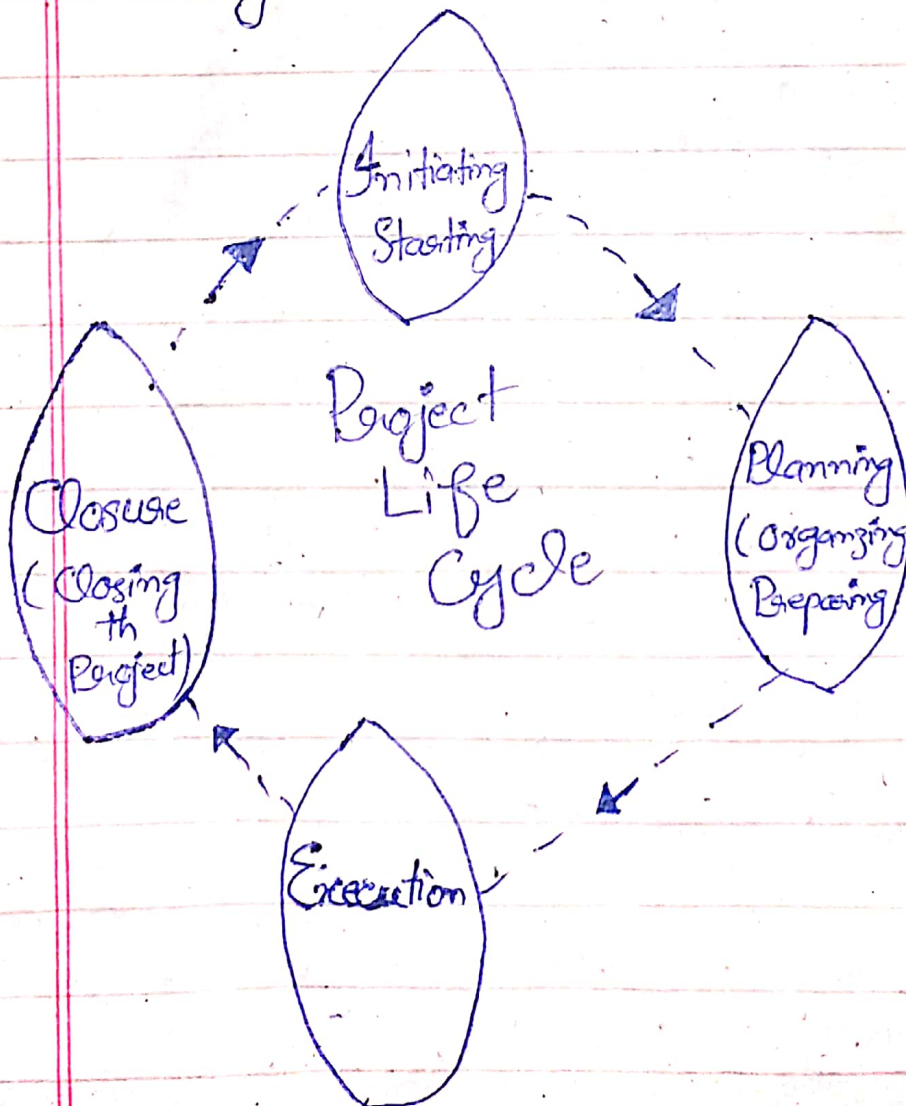 Initiating
Starting
Project
Life
Cycle
Planning
(organizing
Preparing
Closure
(Closing
th
Project)
Execution